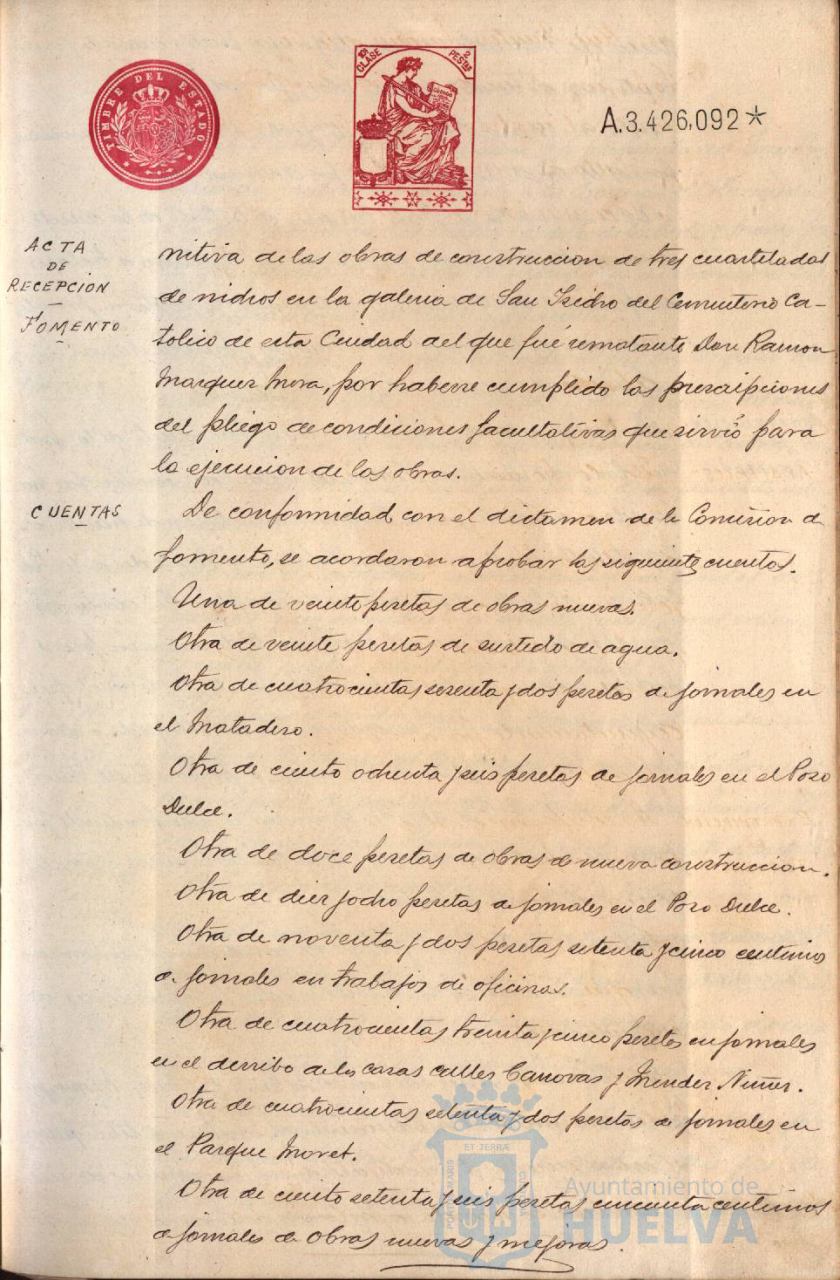 TIMBRE DEL ESTADO
10ª CLASE
2 PESTAS
A.3.426,092*
ACTA
DE
RECEPCIÓN
FOMENTO
nitiva de las obras de construccion de tres cuarteladas
de nichos en la galeria de San Isidro del Cementerio Ca-
tolico de esta Ciudad del que fué rematante Don Ramon
Marquez Mora, por haberse cumplido las prescripciones
del pliego de condiciones facultativas que sirvió para
la ejecucion de las obras.
CUENTAS
De conformidad con el dictamen de la Comision de
fomento, se acordaron aprobar las siguientes cuentas.
Una de veinte pesetas de obras nuevas.
Otra de veinte pesetas de surtido de agua.
Otra de cuatrocientas sesenta y dos pesetas de jornales en
el Matadero.
Otra de ciento ochenta y seis pesetas de jornales en el Pozo
Dulce.
Otra de doce pesetas de obras de nueva construccion.
Otra de diez y ocho pesetas de jornales en el Pozo Dulce.
Otra de noventa y dos pesetas setenta y cinco centimos
de jornales en trabajos de oficinas.
Otra de cuatrocientas treinta y cinco pesetas en jornales
en el derribo de las casas calles Canovas y Mendez Nuñez.
Otra de cuatrocientas setenta y dos pesetas de jornales en
el Parque Moret.
Otra de ciento setenta y seis pesetas cincuenta centimos
de jornales de obras nuevas y mejoras.
Ayuntamiento de
HUELVA